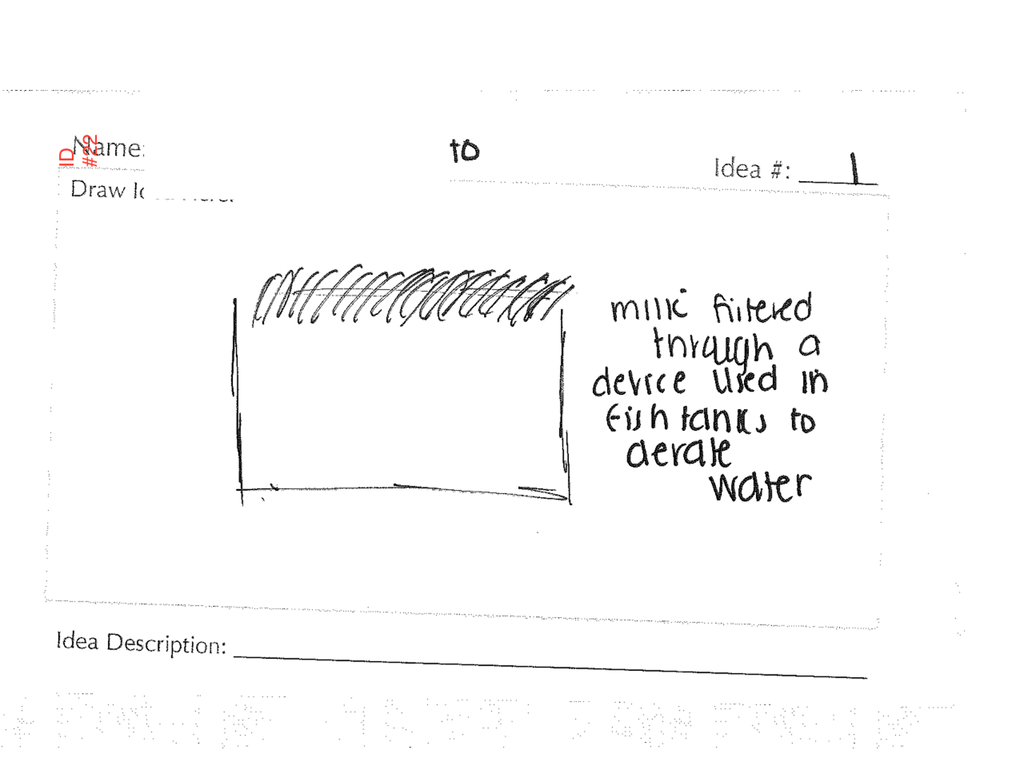 ID
#22
Name:
to
Idea #: 1
Draw Id
milk filtered
through a
device used in
fish tanks to
aerate
water
Idea Description: